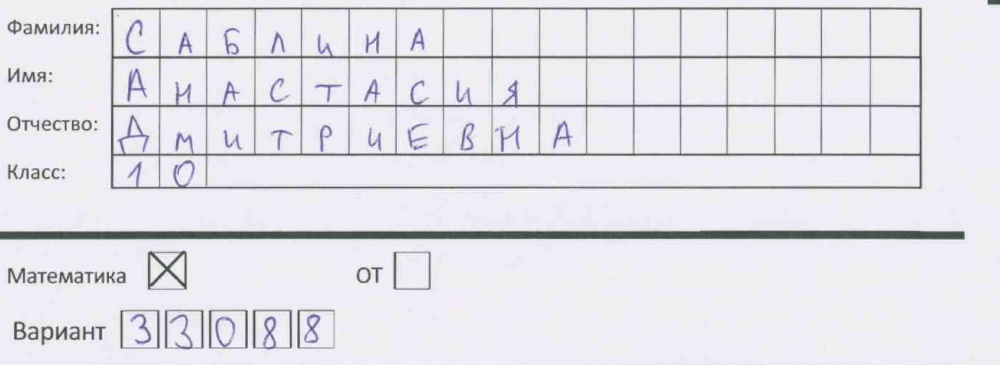 Фамилия: САБЛИНА
Имя: АНАСТАСИЯ
Отчество: ДМИТРИЕВНА
Класс: 10
Математика ☒ ОТ ☐
Вариант 33088